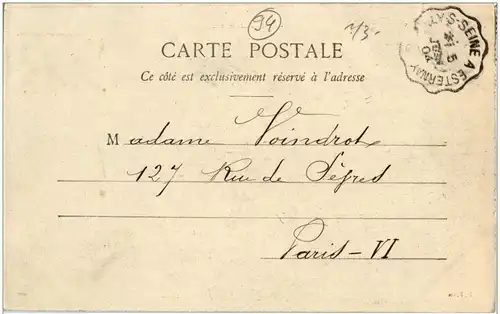 94
CARTE POSTALE
Ce côté est exclusivement réservé à l'adresse
Y-S-SEINE A ESTERNAY
5
04
Madame Voindrot
127 Rue de Sèvres
Paris-VI